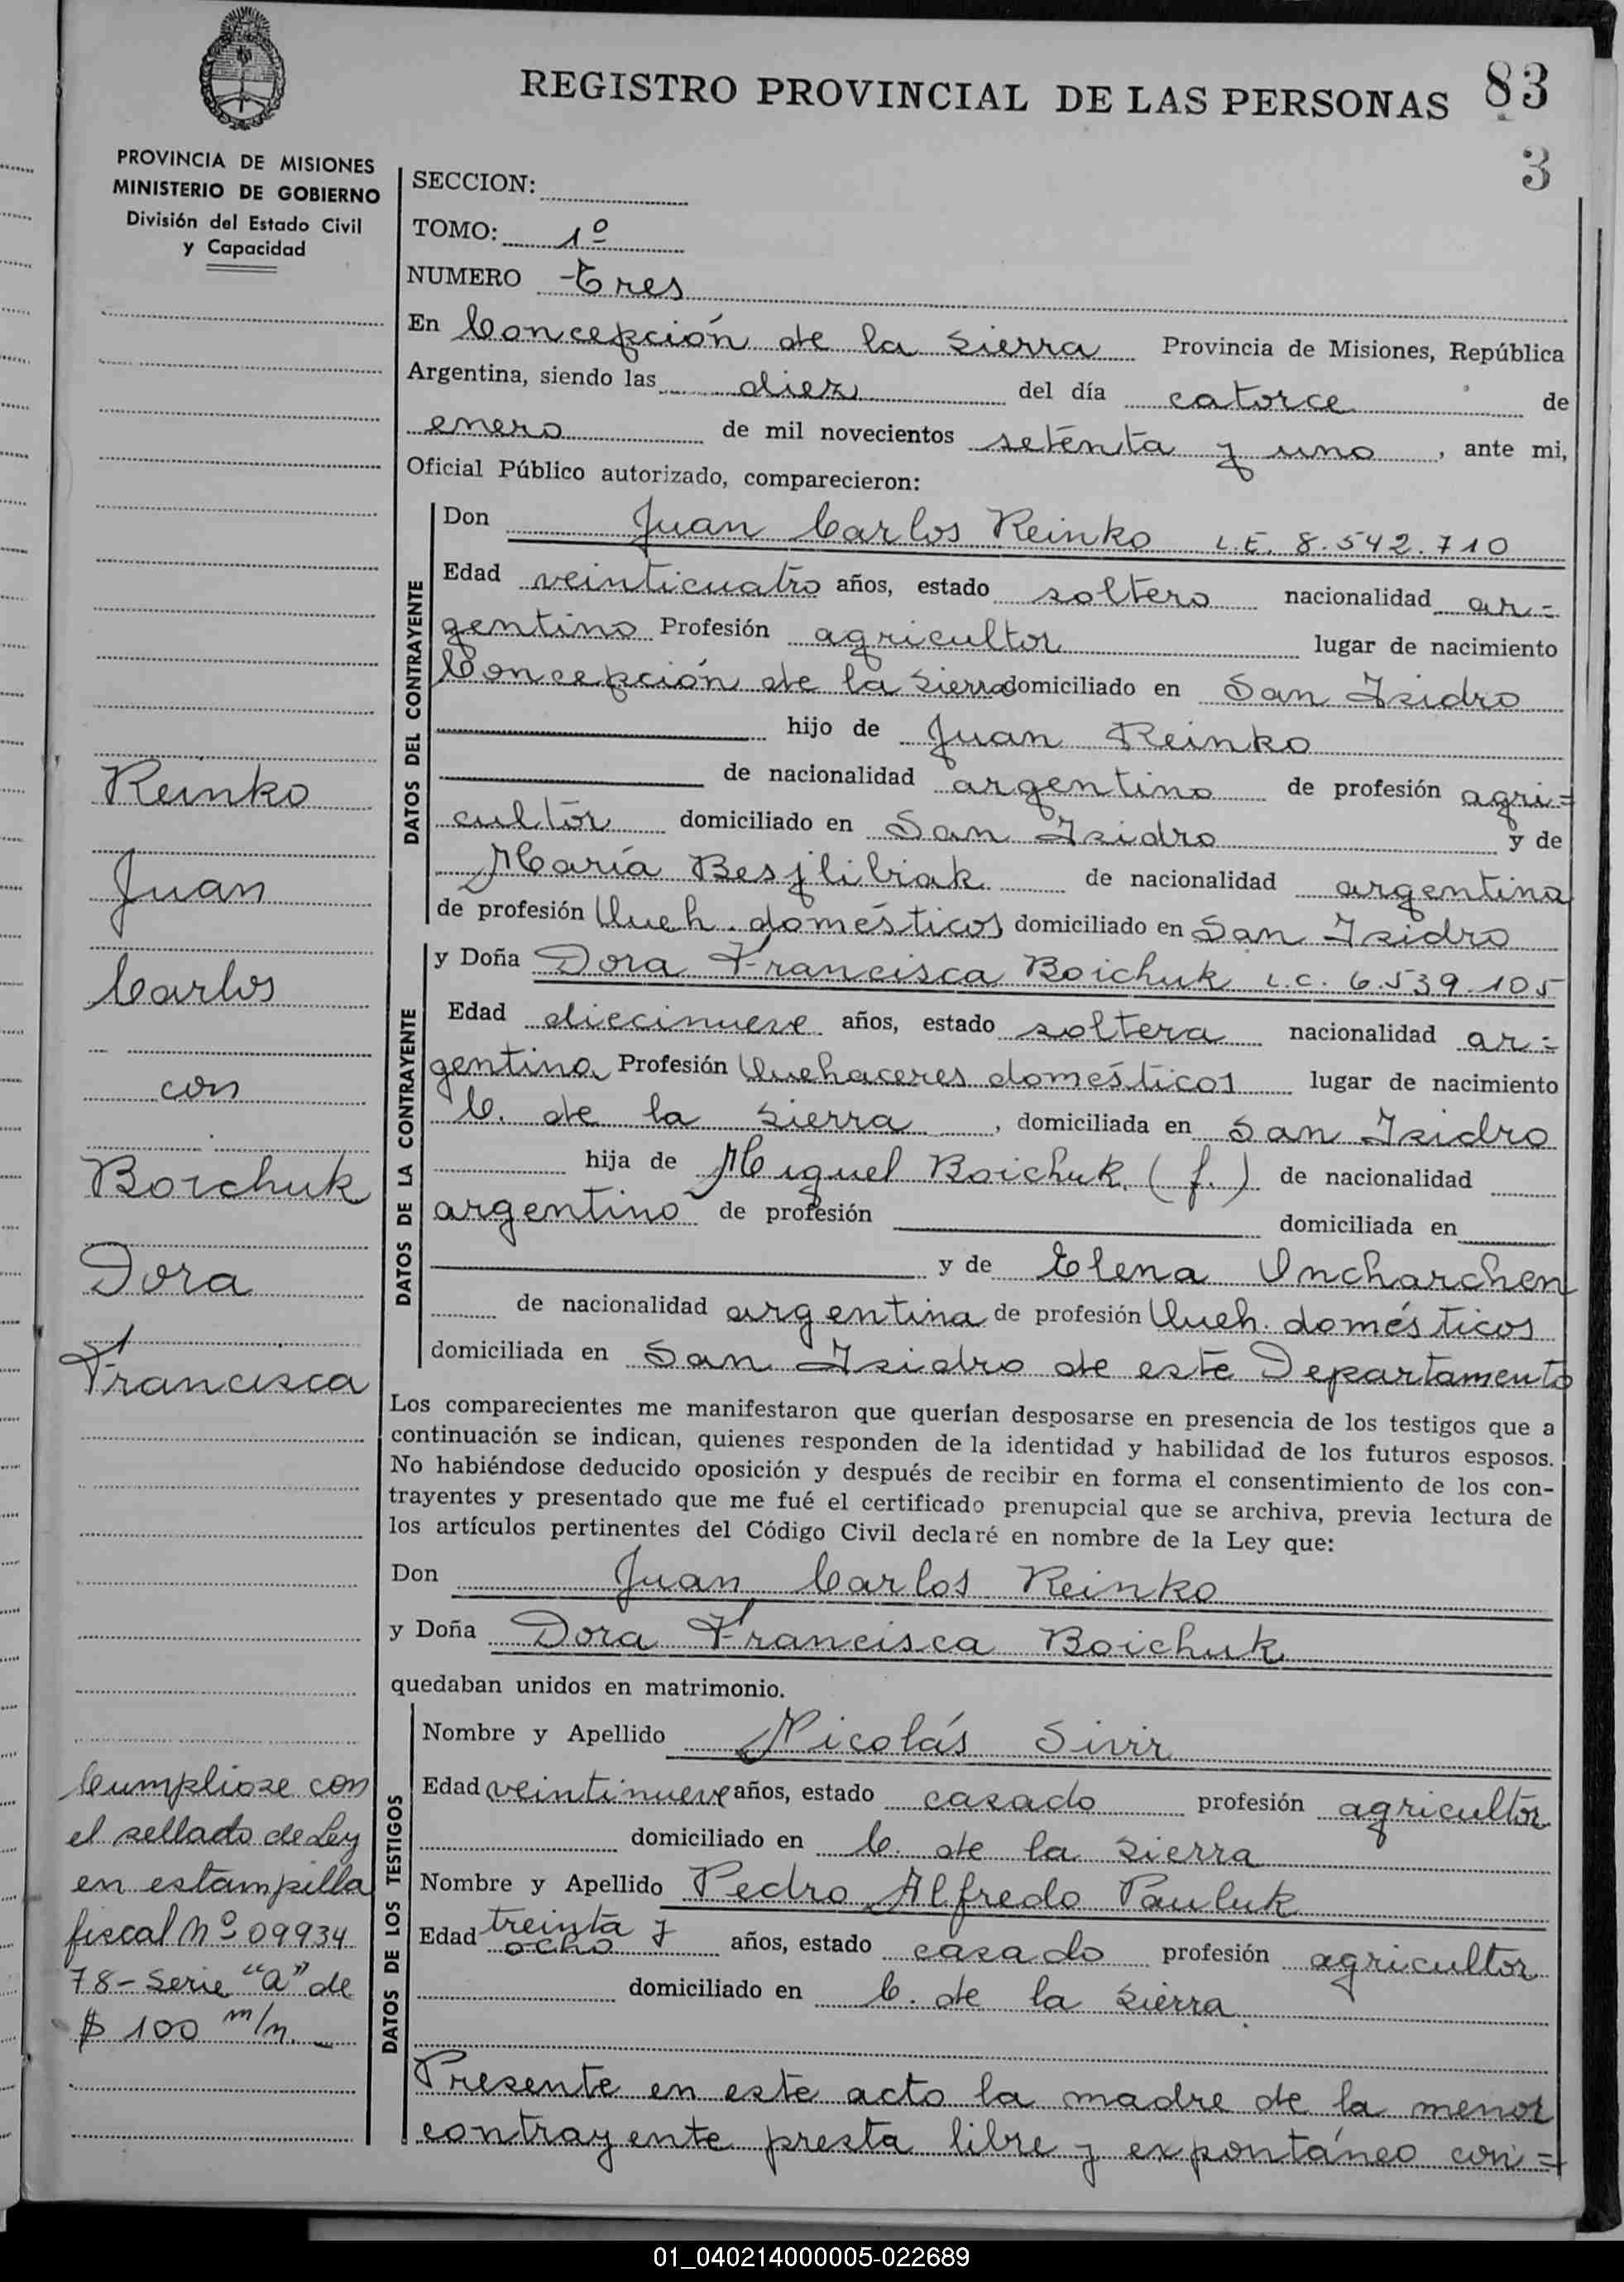 REGISTRO PROVINCIAL DE LAS PERSONAS 83
3
PROVINCIA DE MISIONES
MINISTERIO DE GOBIERNO
División del Estado Civil
y Capacidad
SECCION:
TOMO: 1º
NUMERO Tres
En Concepción de la Sierra Provincia de Misiones, República
Argentina, siendo las diez del día catorce de
enero de mil novecientos setenta y uno, ante mi,
Oficial Público autorizado, comparecieron:
DATOS DEL CONTRAYENTE
Don Juan Carlos Reinko L.E. 8.542.710
Edad veinticuatro años, estado soltero nacionalidad ar=
gentino Profesión agricultor lugar de nacimiento
Concepción de la Sierra domiciliado en San Isidro
hijo de Juan Reinko
de nacionalidad argentino de profesión agri=
cultor domiciliado en San Isidro y de
María Besjlibiak de nacionalidad argentina
de profesión Queh. domésticos domiciliado en San Isidro
DATOS DE LA CONTRAYENTE
y Doña Dora Francisca Boichuk L.C. 6.539.105
Edad diecinueve años, estado soltera nacionalidad ar=
gentina Profesión Quehaceres domésticos lugar de nacimiento
C. de la Sierra, domiciliada en San Isidro
hija de Miguel Boichuk (f.) de nacionalidad
argentino de profesión domiciliada en
y de Elena Oncharchen
de nacionalidad argentina de profesión Queh. domésticos
domiciliada en San Isidro de este Departamento
Los comparecientes me manifestaron que querían desposarse en presencia de los testigos que a
continuación se indican, quienes responden de la identidad y habilidad de los futuros esposos.
No habiéndose deducido oposición y después de recibir en forma el consentimiento de los con-
trayentes y presentado que me fué el certificado prenupcial que se archiva, previa lectura de
los artículos pertinentes del Código Civil declaré en nombre de la Ley que:
Don Juan Carlos Reinko
y Doña Dora Francisca Boichuk
quedaban unidos en matrimonio.
DATOS DE LOS TESTIGOS
Nombre y Apellido Nicolás Sivir
Edad veintinueve años, estado casado profesión agricultor
domiciliado en C. de la Sierra
Nombre y Apellido Pedro Alfredo Pauluk
Edad treinta y
ocho años, estado casado profesión agricultor
domiciliado en C. de la Sierra
Presente en este acto la madre de la menor
contrayente presta libre y expontáneo con=
Reinko
Juan
Carlos
con
Boichuk
Dora
Francisca
Cumpliose con
el sellado de Ley
en estampilla
fiscal Nº 09934
78- Serie "A" de
$ 100 m/n.
01_040214000005-022689